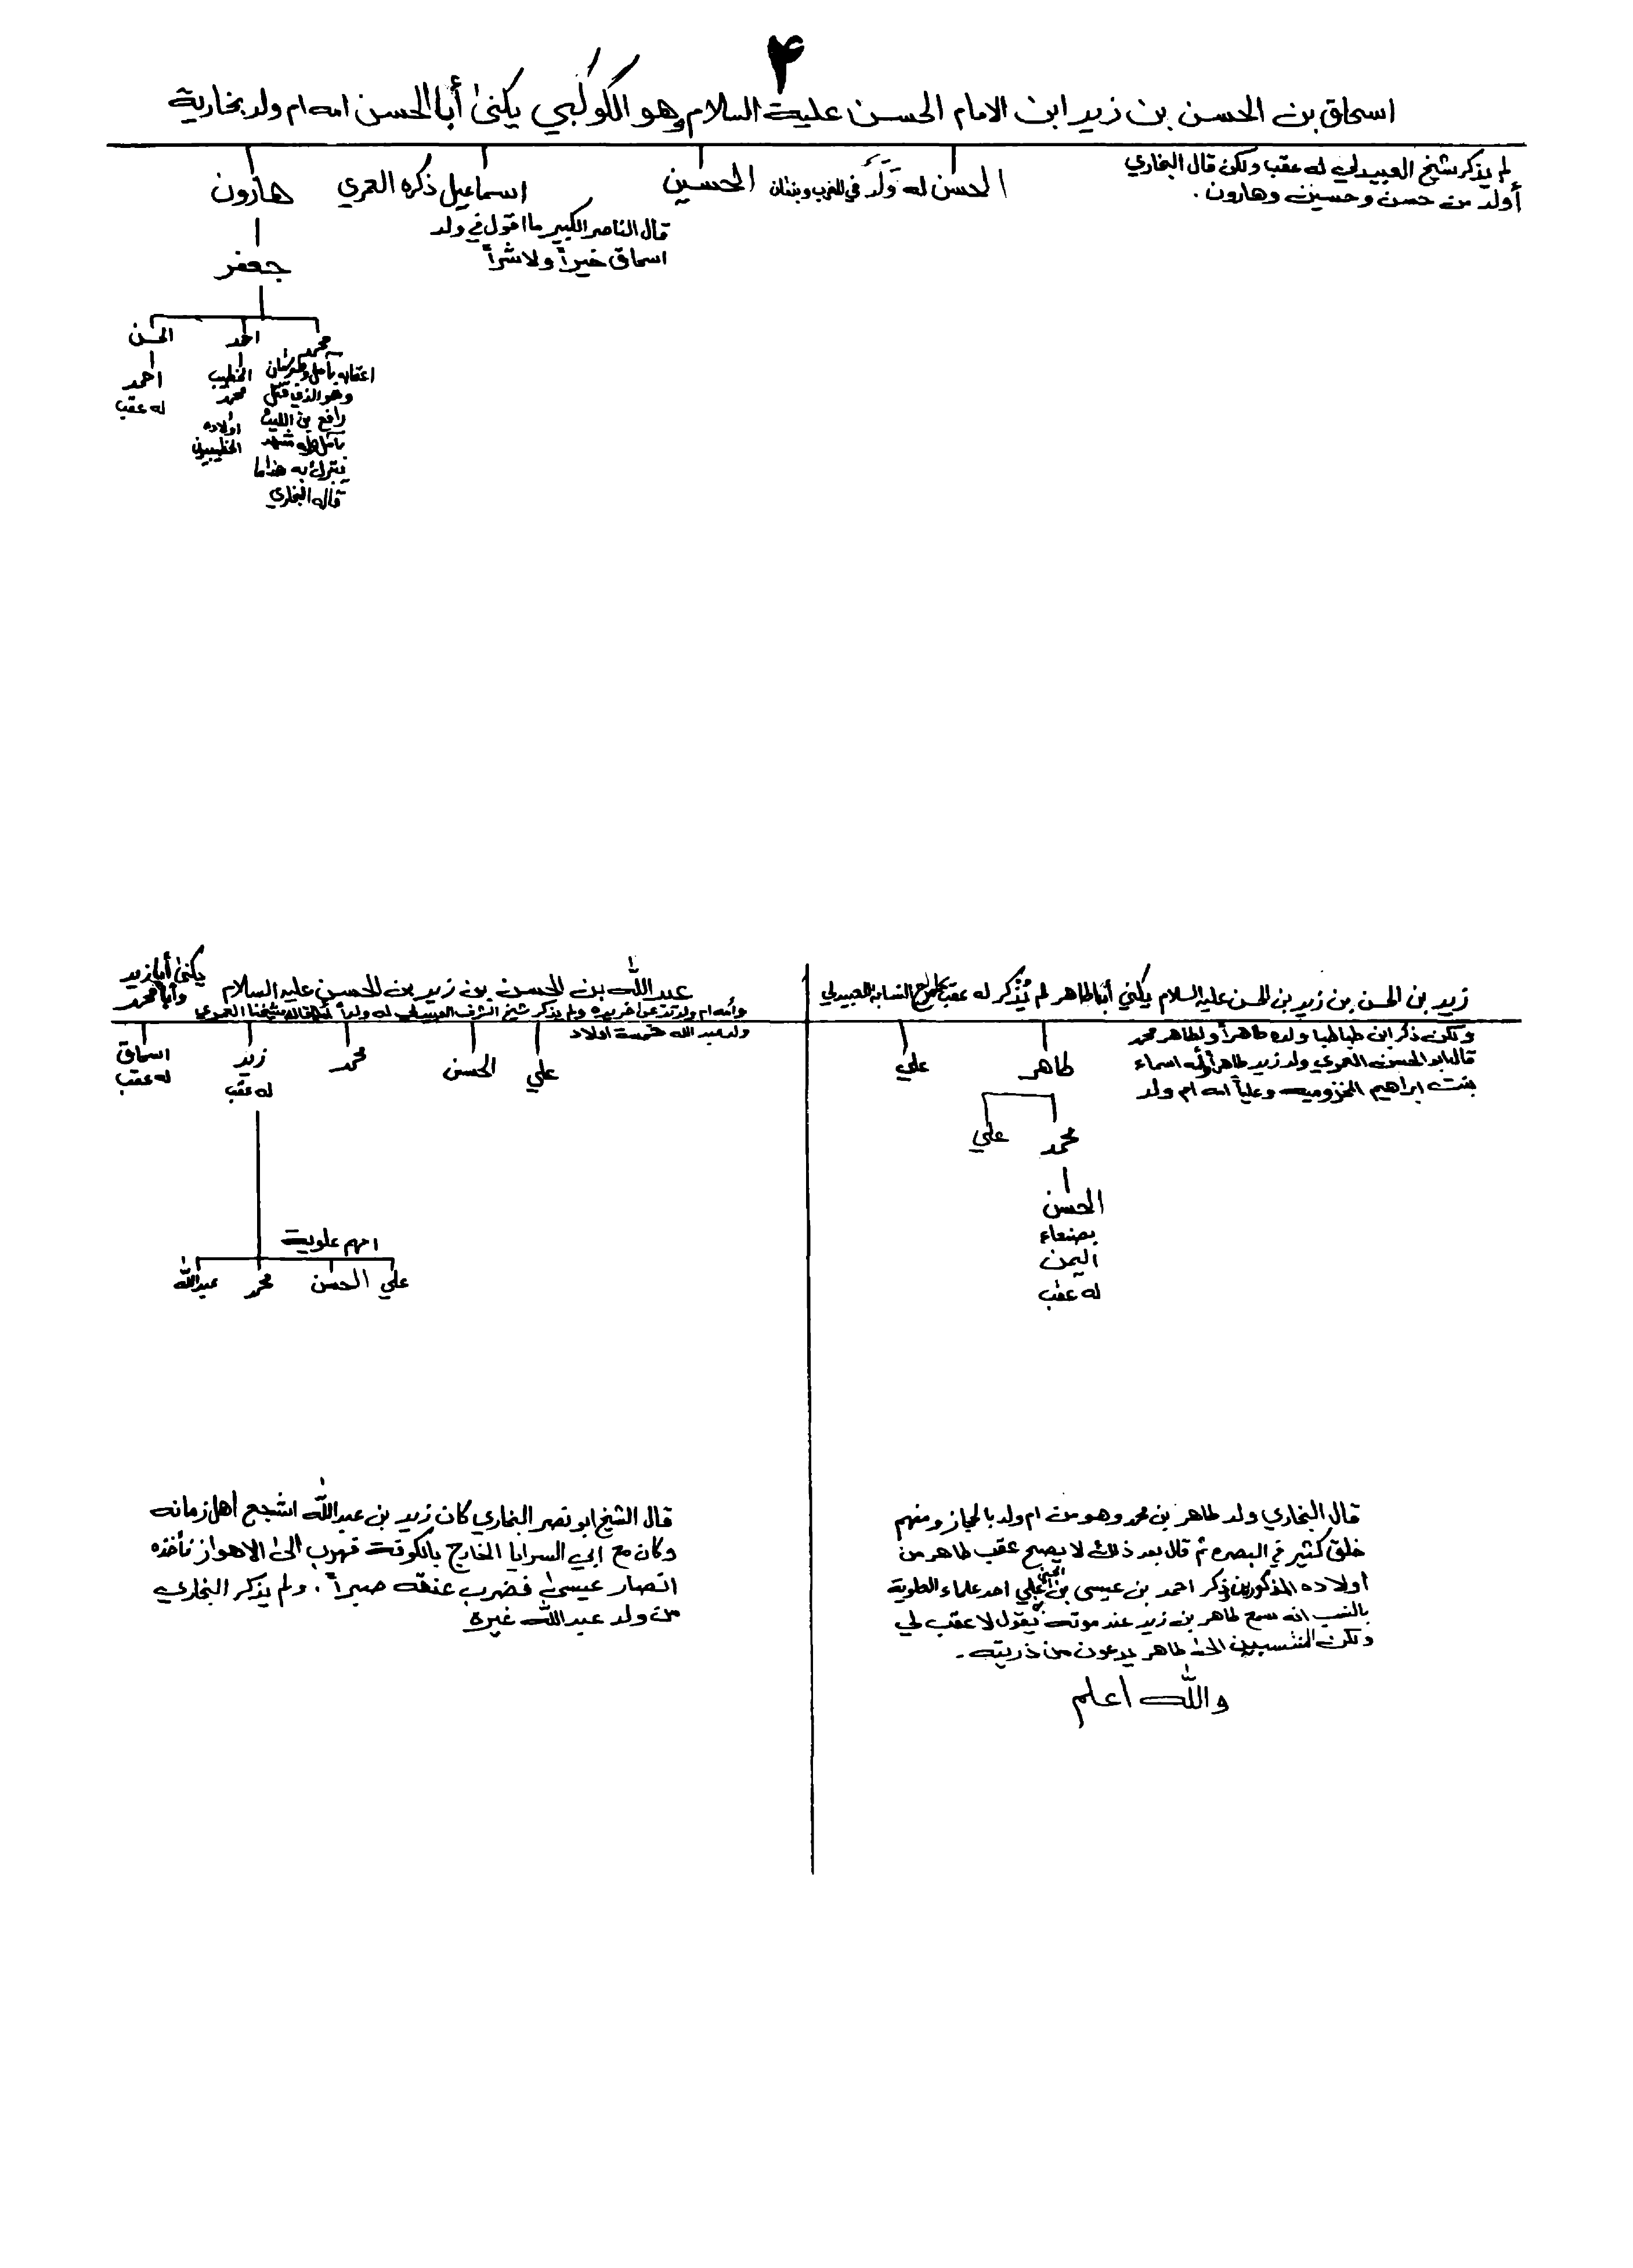 ۴
اسحاق بن الحسن بن زيد ابن الامام الحسن علية السلام وهو الكوكبي يكنى أبا الحسن امه ام ولد بخارية
لم يذكر شيخ العبيدلي له عقب ولكن قال البخاري
أولد من حسن وحسين وهارون.
الحسن له وَلَد في المغرب وبنتان
الحسين
اسماعيل ذكره العمري
قال الناصر الكبير ما اقول في ولد
اسحاق خيراً ولا شراً
هارون
جعفر
محمد
اعقابه بآمل وطبرستان
وهو الذي قتل
رافع بن الليث
بآمل وله مشهد
يتبرك به هذا ما
قاله البخاري
احمد
الخطيب
محمد
أولاده
الخطيبيون
الحسن
احمد
له عقب
زيد بن الحسن بن زيد بن الحسن عليه السلام يكني أبا طاهر لم يُذكر له عقب النسابة العبيدلي
ولكن ذكر ابن طباطبا ولده طاهراً ولطاهر محمد
قال ابو الحسن العمري ولد زيد طاهراً أمه اسماء
بنت ابراهيم المخزوميه وعلياً امه ام ولد
طاهر
علي
محمد
علي
الحسن
بصنعاء
اليمن
له عقب
قال البخاري ولد طاهر بن محمد وهو من ام ولد بالحجاز ومنهم
خلق كثير في البصره ثم قال بعد ذلك لا يصح عقب طاهر من
أولاده المذكورين وذكر احمد بن عيسى بن علي احد علماء العلوية
بالنسب انه سمع طاهر بن زيد عند موته يقول لا عقب لي
ولكن المنتسبين الى طاهر يدعون من ذريته .
والله اعلم
عبد الله بن الحسن بن زيد بن الحسن عليه السلام
يكنى أبا زيد
وأبا محمد
وأمه ام ولد ولم يذكر شيخ الشرف العبيدلي له ولداً قال شيخنا العمري
ولد عبد الله خمسة اولاد
علي
الحسن
محمد
زيد
له عقب
اسحاق
له عقب
امهم علوية
علي
الحسن
محمد
عبد الله
قال الشيخ ابو نصر البخاري كان زيد بن عبد الله اشجع أهل زمانه
وكان مع ابي السرايا الخارج بالكوفة فهرب الى الاهواز فأخذه
انصار عيسى فضرب عنقه صبراً . ولم يذكر البخاري
من ولد عبد الله غيره